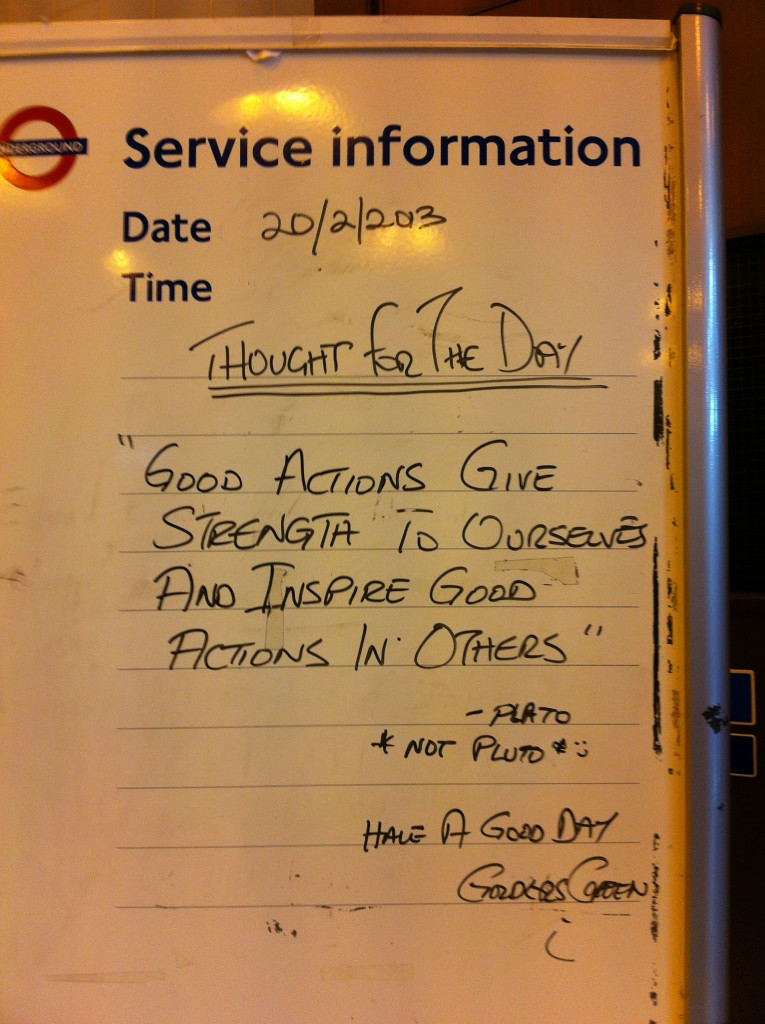 UNDERGROUND
Service information
Date 20/2/2013
Time
THOUGHT FOR THE DAY
"GOOD ACTIONS GIVE
STRENGTH TO OURSELVES
AND INSPIRE GOOD
ACTIONS IN OTHERS"
- PLATO
* NOT PLUTO * :)
HAVE A GOOD DAY
GOLDERS GREEN